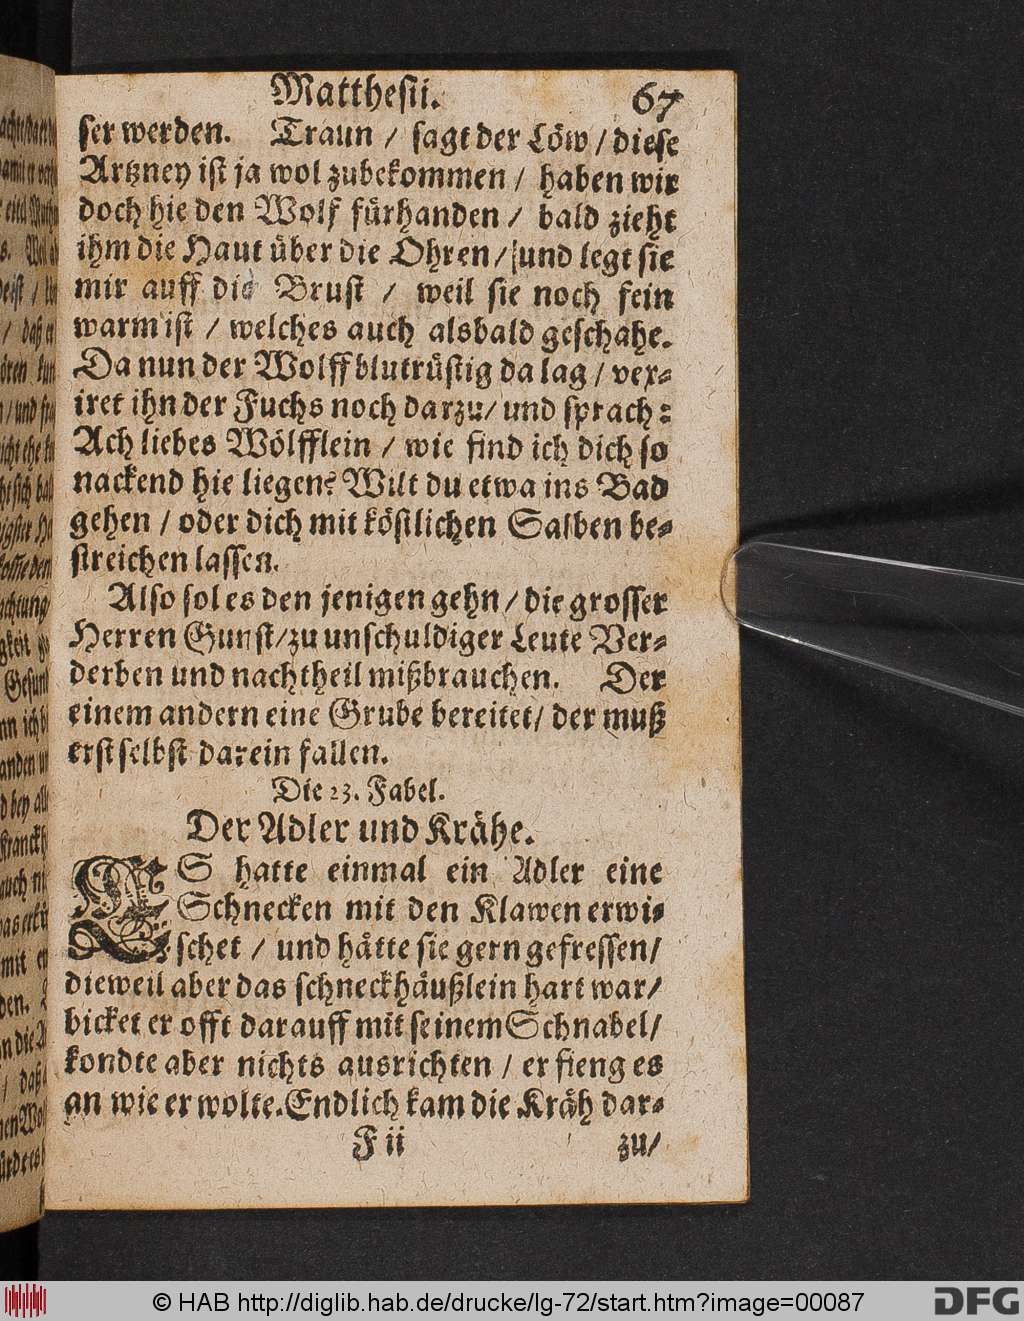 Matthesii. 67
ser werden. Traun / sagt der Löw / diese
Artzney ist ja wol zubekommen / haben wir
doch hie den Wolf fürhanden / bald zieht
ihm die Haut über die Ohren / und legt sie
mir auff die Brust / weil sie noch fein
warm ist / welches auch alsbald geschahe.
Da nun der Wolff blutrüstig da lag / vex-
iret ihn der Fuchs noch darzu / und sprach:
Ach liebes Wölfflein / wie find ich dich so
nackend hie liegen? Wilt du etwa ins Bad
gehen / oder dich mit köstlichen Salben be-
streichen lassen.
Also sol es den jenigen gehn / die grosser
Herren Gunst / zu unschuldiger Leute Ver-
derben und nachtheil mißbrauchen. Der
einem andern eine Grube bereitet / der muß
erst selbst darein fallen.
Die 23. Fabel.
Der Adler und Krähe.
ES hatte einmal ein Adler eine
Schnecken mit den Klawen erwi-
schet / und hätte sie gern gefressen /
dieweil aber das schneckhäußlein hart war /
bicket er offt darauff mit seinem Schnabel /
kondte aber nichts ausrichten / er fieng es
an wie er wolte. Endlich kam die Kräh dar-
F ii zu /
© HAB http://diglib.hab.de/drucke/lg-72/start.htm?image=00087
DFG